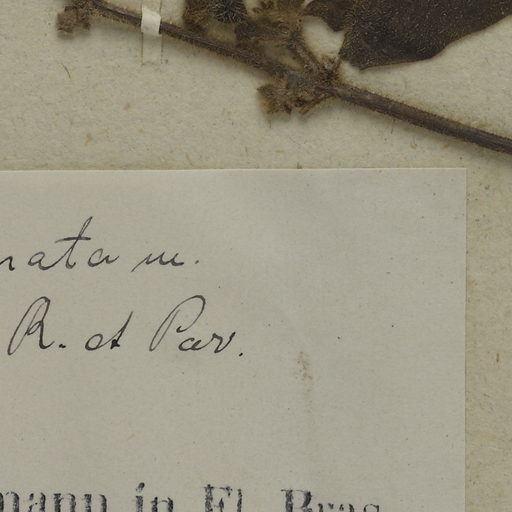 nata m.
R. et Pav.
mann in Fl. Bras.